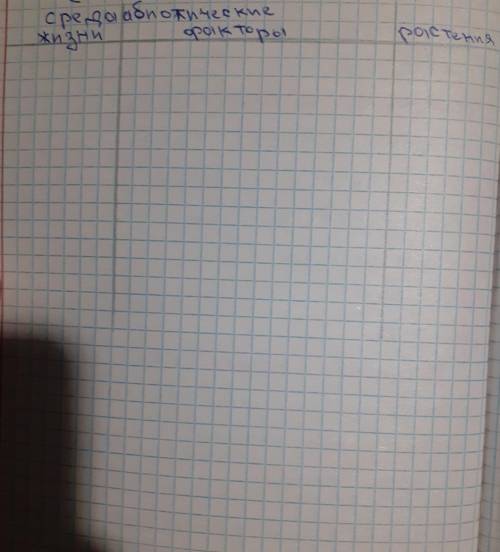 среда абиотические
жизни факторы растения